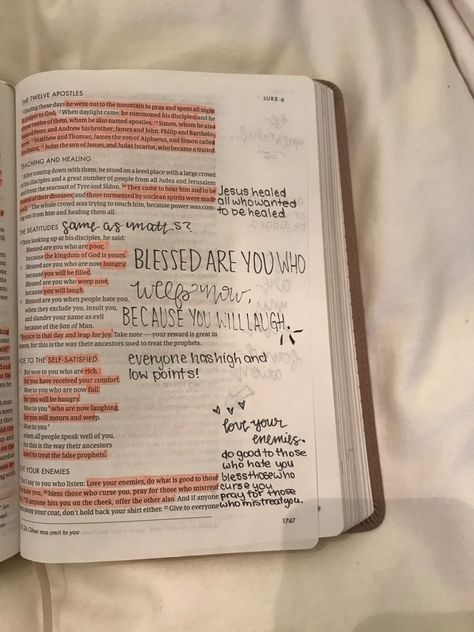 LUKE 6
THE TWELVE APOSTLES
During those days he went out to the mountain to pray and spent all night
in prayer to God. When daylight came, he summoned his disciples, and he
chose twelve of them, whom he also named apostles: Simon, whom he also
named Peter, and Andrew his brother; James and John; Philip and Bartholomew;
Matthew and Thomas; James the son of Alphaeus, and Simon called
the Zealot; Judas the son of James, and Judas Iscariot, who became a traitor.
TEACHING AND HEALING
After coming down with them, he stood on a level place with a large crowd
of his disciples and a great number of people from all Judea and Jerusalem
and from the seacoast of Tyre and Sidon. They came to hear him and to be
healed of their diseases; and those tormented by unclean spirits were made
well. The whole crowd was trying to touch him, because power was coming
out from him and healing them all.
Jesus healed
all who wanted
to be healed
THE BEATITUDES same as matt 5?
Then looking up at his disciples, he said:
Blessed are you who are poor,
because the kingdom of God is yours.
Blessed are you who are now hungry,
because you will be filled.
Blessed are you who weep now,
because you will laugh.
Blessed are you when people hate you,
when they exclude you, insult you,
and slander your name as evil
because of the Son of Man.
Rejoice in that day and leap for joy. Take note — your reward is great in
heaven, for this is the way their ancestors used to treat the prophets.
BLESSED ARE YOU WHO
weep now,
BECAUSE YOU WILL LAUGH.
WOE TO THE SELF-SATISFIED
But woe to you who are rich,
for you have received your comfort.
Woe to you who are now full,
for you will be hungry.
Woe to you who are now laughing,
for you will mourn and weep.
Woe to you
when all people speak well of you,
for this is the way their ancestors
used to treat the false prophets.
everyone has high and
low points!
love your
enemies.
do good to those
who hate you
bless those who
curse you
pray for those
who mistreat you.
LOVE YOUR ENEMIES
But I say to you who listen: Love your enemies, do what is good to those
who hate you, bless those who curse you, pray for those who mistreat
you. If anyone hits you on the cheek, offer the other also. And if anyone
takes away your coat, don't hold back your shirt either. Give to everyone
6:26 Other mss omit to you
1747